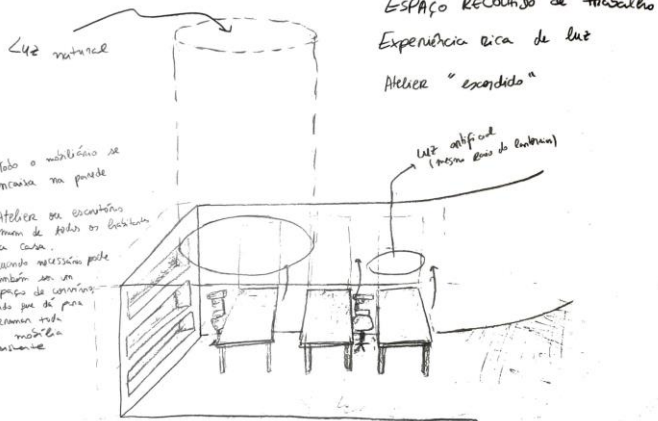 ESPAÇO RECOLHIDO de trabalho
Luz natural
Experiência rica de luz
Atelier "escondido"
luz artificial
(mesmo raio do lanternim)
Todo o mobiliário se
encaixa na parede
Atelier ou escritório
de todos os habitantes
da casa.
Quando necessário pode
também ser um
espaço de convívio
que dá para
toda
a mobília